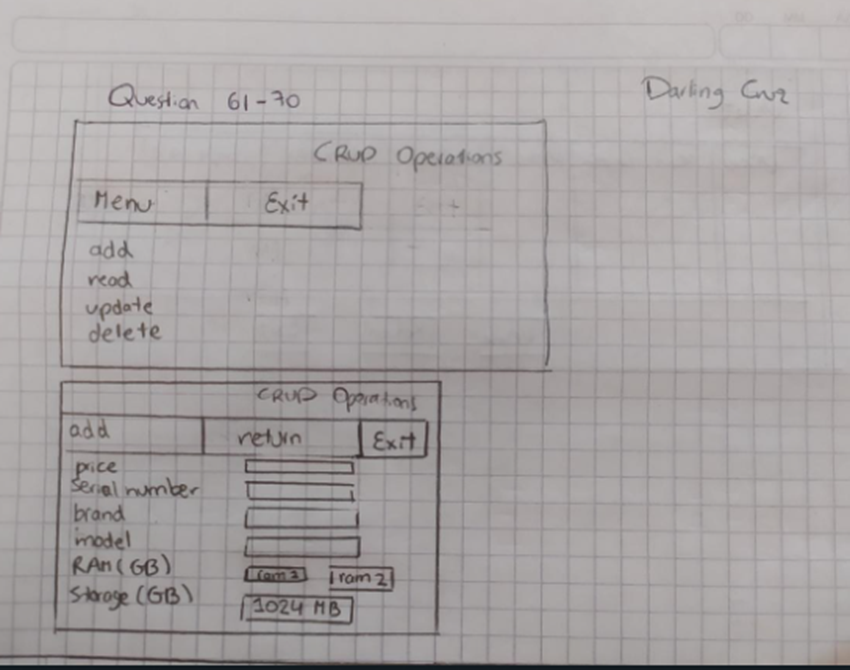 Question 61-70
Darling Cruz
CRUD Operations
Menu Exit
add
read
update
delete
CRUD Operations
add return Exit
price
Serial number
brand
model
RAM (GB) ram 2 ram 2
Storage (GB) 1024 MB